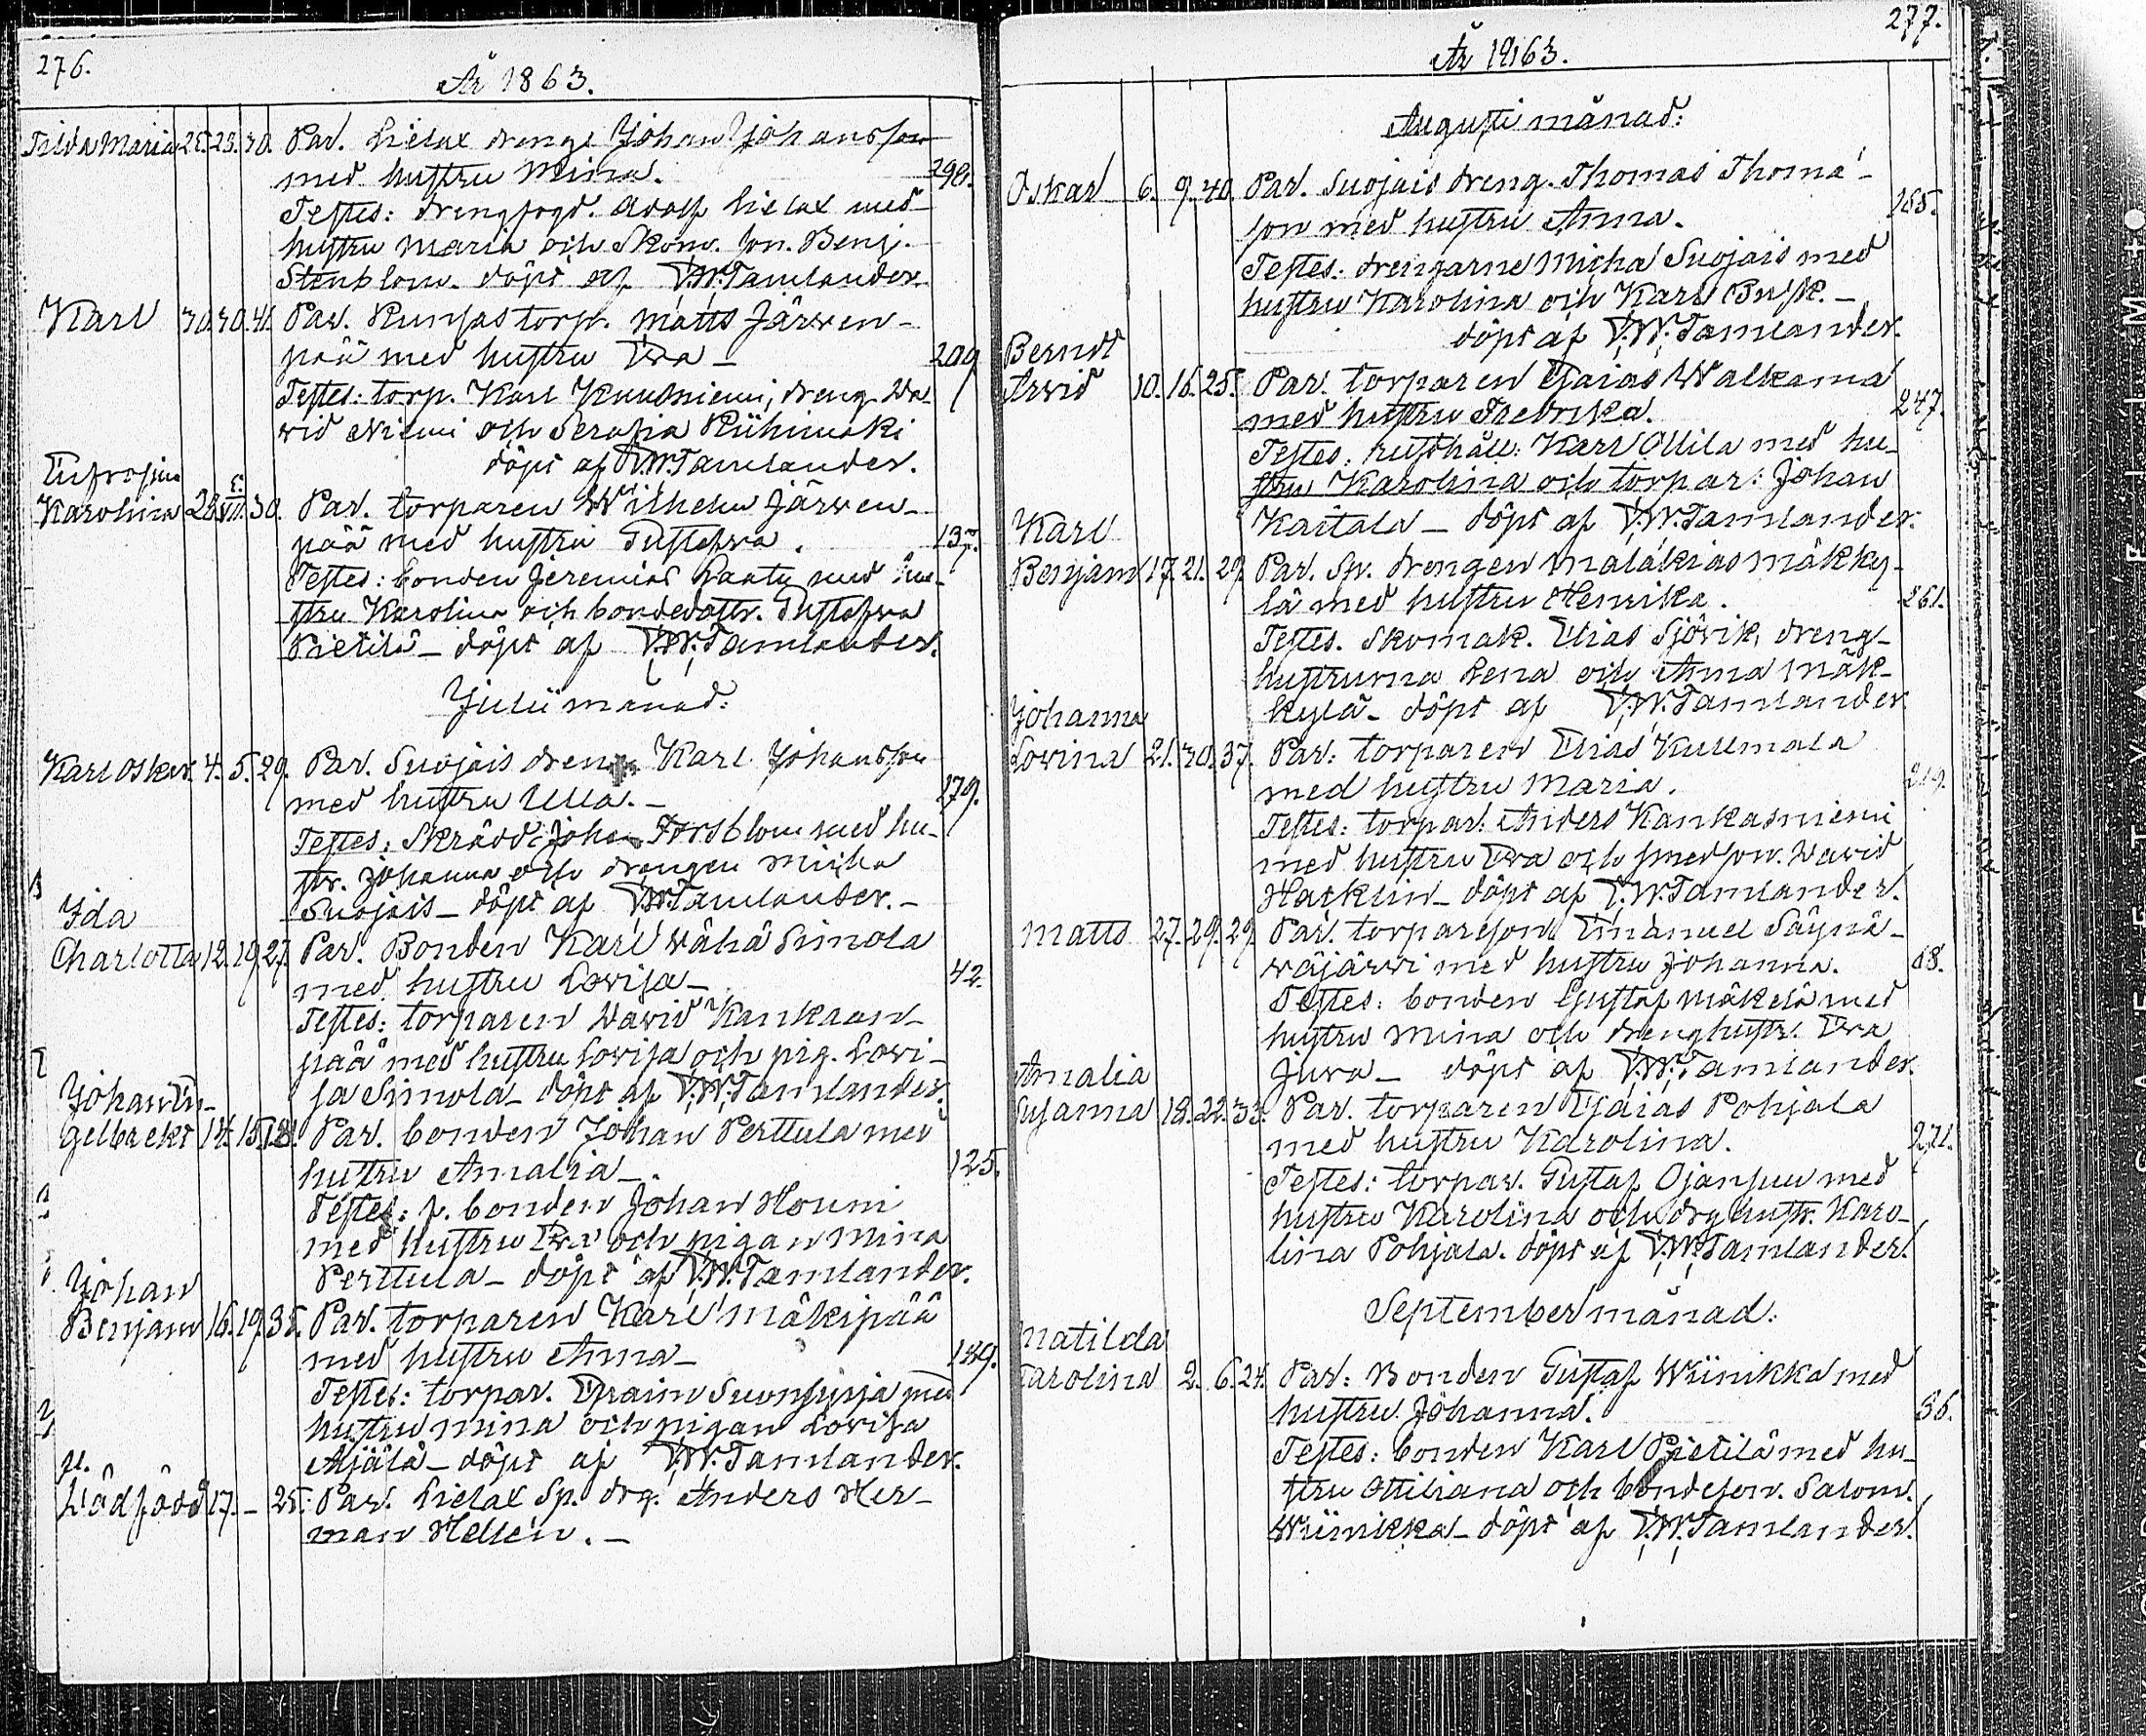 276.
År 1863.
Tilda Maria 25. 29. 30. Par. Lielax drengs Johan Johansson
med hustru Mina. 298.
Testes: drengfogd. Adolf Lielax med
hustru Maria och Skom. son. Benj.
Stenblom. döpt af V.W. Tamlander.
Karl 30. 30. 41. Par. Runsas torp. Matts Järwen-
pää med hustru Ewa - 209
Testes: torp. Karl Kuusniemi, dreng. Da-
vid Niemi och Serafia Riihimäki
döpt af V.W. Tamlander.
Eufrosina
Karolina 28. 5. VII. 30. Par. torparen Wilhelm Järwen-
pää med hustru Gustafwa. 137.
Testes: bonden Jeremias Raatu med hu-
stru Karolina och bondedottr. Gustafwa
Pietilä - döpt af V.W. Tamlander.
Julii månad:
Karl Oskar. 4. 5. 29. Par. Suojois dreng Karl Johansson
med hustru Ulla. - 179.
Testes: Skrädd. Johan Forsblom med hu-
str. Johanna och drengen Micha
Suojois - döpt af V.W. Tamlander. -
Ida
Charlotta 12. 19. 27. Par. Bonden Karl Wähä Simola
med hustru Lovisa - 42.
Testes: torparen David Kankaan-
pää med hustru Lovisa och pig. Lovi-
sa Simola - döpt af V.W. Tamlander.
Johan En-
gelbrekt 14. 15. Par. bonden Johan Perttula med
hustru Amalia - 125.
Testes: f. bonden Johan Houni
med hustru Ewa och pigan Mina
Perttula - döpt af V.W. Tamlander.
Johan
Benjam 16. 19. 35. Par. torparen Karl Mäkipää
med hustru Anna - 189.
Testes: torpar. Efraim Suonsyrjä med
hustru Mina och pigan Lovisa
Äijälä - döpt af V.W. Tamlander.
gl.
Dödfödd 17. - 25. Par. Lielax Sp. drg. Anders Her-
man Hellén. -
277.
År 1863.
Augusti månad:
Oskar 6. 9. 40. Par. Suojois dreng. Thomas Thoma-
son med hustru Anna. 165.
Testes: drengarne Micha Suojois med
hustru Karolina och Karl Busk. -
döpt af V.W. Tamlander.
Berndt
Arvid 10. 16. 25. Par. torparen Esaias Walkama
med hustru Fredrika. 247.
Testes: rusthåll. Karl Ollila med hu-
stru Karolina och torpar: Johan
Kaitala - döpt af V.W. Tamlander.
Karl
Benjam 17. 21. 29. Par. Sp. drengen Malakias Mäkky-
lä med hustru Henrika. 261.
Testes. Skomak. Elias Sjövik, dreng-
hustrurna Lena och Anna Mäk-
kylä - döpt af V.W. Tamlander
Johanna
Lovina 21. 30. 37. Par: torparen Elias Kullmala
med hustru Maria. 219.
Testes: torpar: Anders Kankasniemi
med hustru Ewa och smedson. David
Hacklin - döpt af V.W. Tamlander.
Matts 27. 29. 29. Par. torpareson. Emanuel Säynä-
wäjärwi med hustru Johanna. 68.
Testes: bonden Gustaf Mäkelä med
hustru Mina och drenghustr. Ewa
Juva - döpt af V.W. Tamlander.
Amalia
Susanna 18. 22. 33. Par. torparen Esaias Pohjala
med hustru Karolina. 271.
Testes: torpar. Gustaf Ojansuu med
hustru Karolina och drg hustr. Karo-
lina Pohjala. döpt af V.W. Tamlander.
September månad:
Matilda
Karolina 2. 6. 24. Par: Bonden Gustaf Wiinikka med
hustru Johanna. 86.
Testes: bonden Karl Pietilä med hu-
stru Ottiliana och bondeson. Salom.
Wiinikka - döpt af V.W. Tamlander.